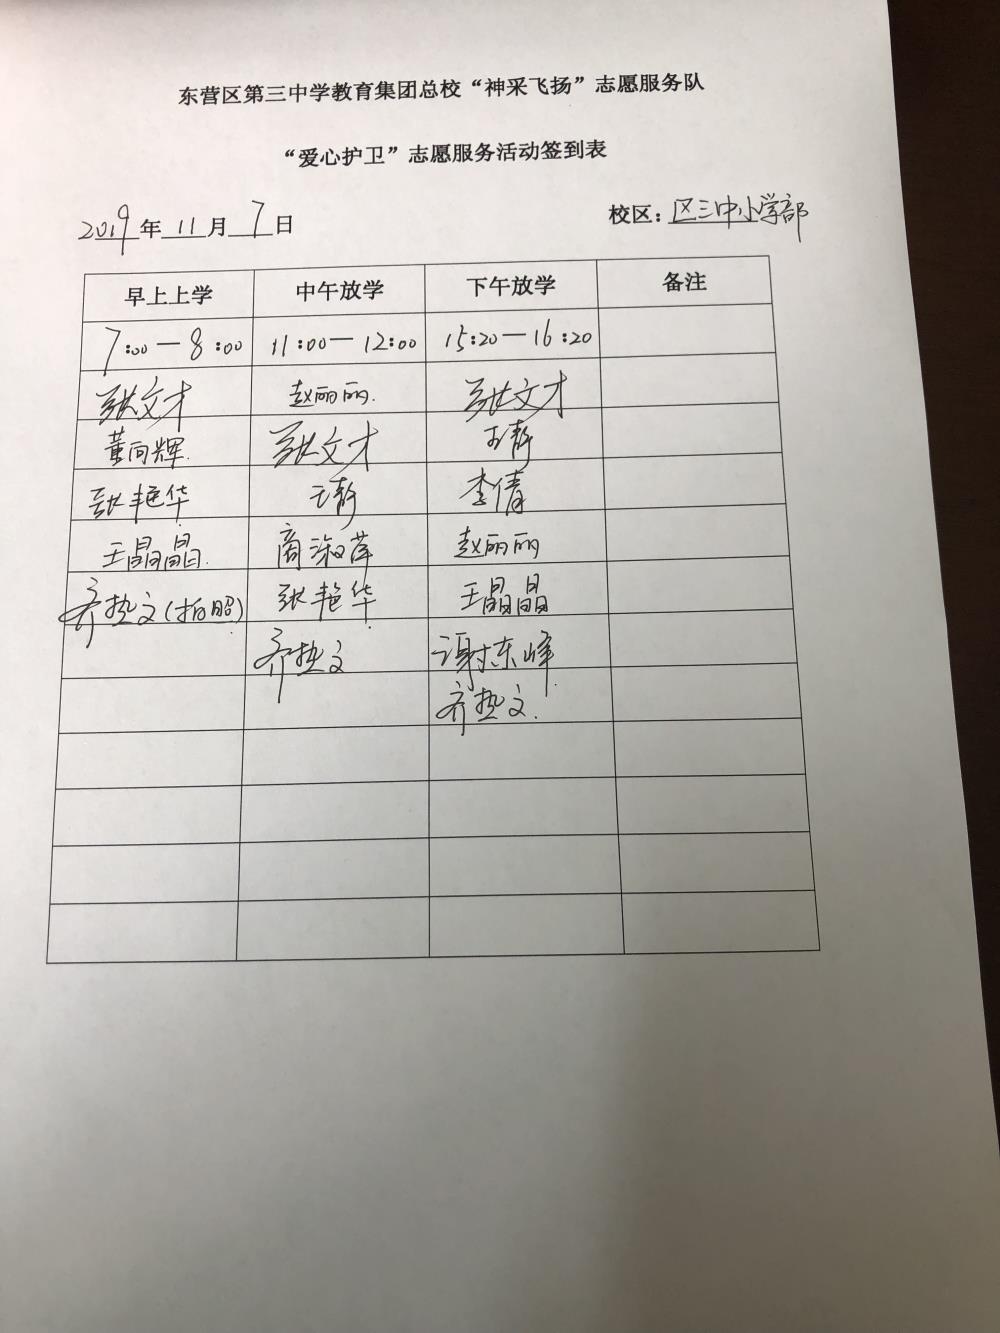 东营区第三中学教育集团总校“神采飞扬”志愿服务队
“爱心护卫”志愿服务活动签到表
2019年11月7日 校区：区三中小学部
早上上学 中午放学 下午放学 备注
7:00—8:00 11:00—12:00 15:20—16:20
张文才 赵丽丽 张文才
董向辉 张文才 王静
张艳华 王静 李倩
王晶晶 商淑萍 赵丽丽
齐热文(拍照) 张艳华 王晶晶
齐热文 谢东峰
齐热文